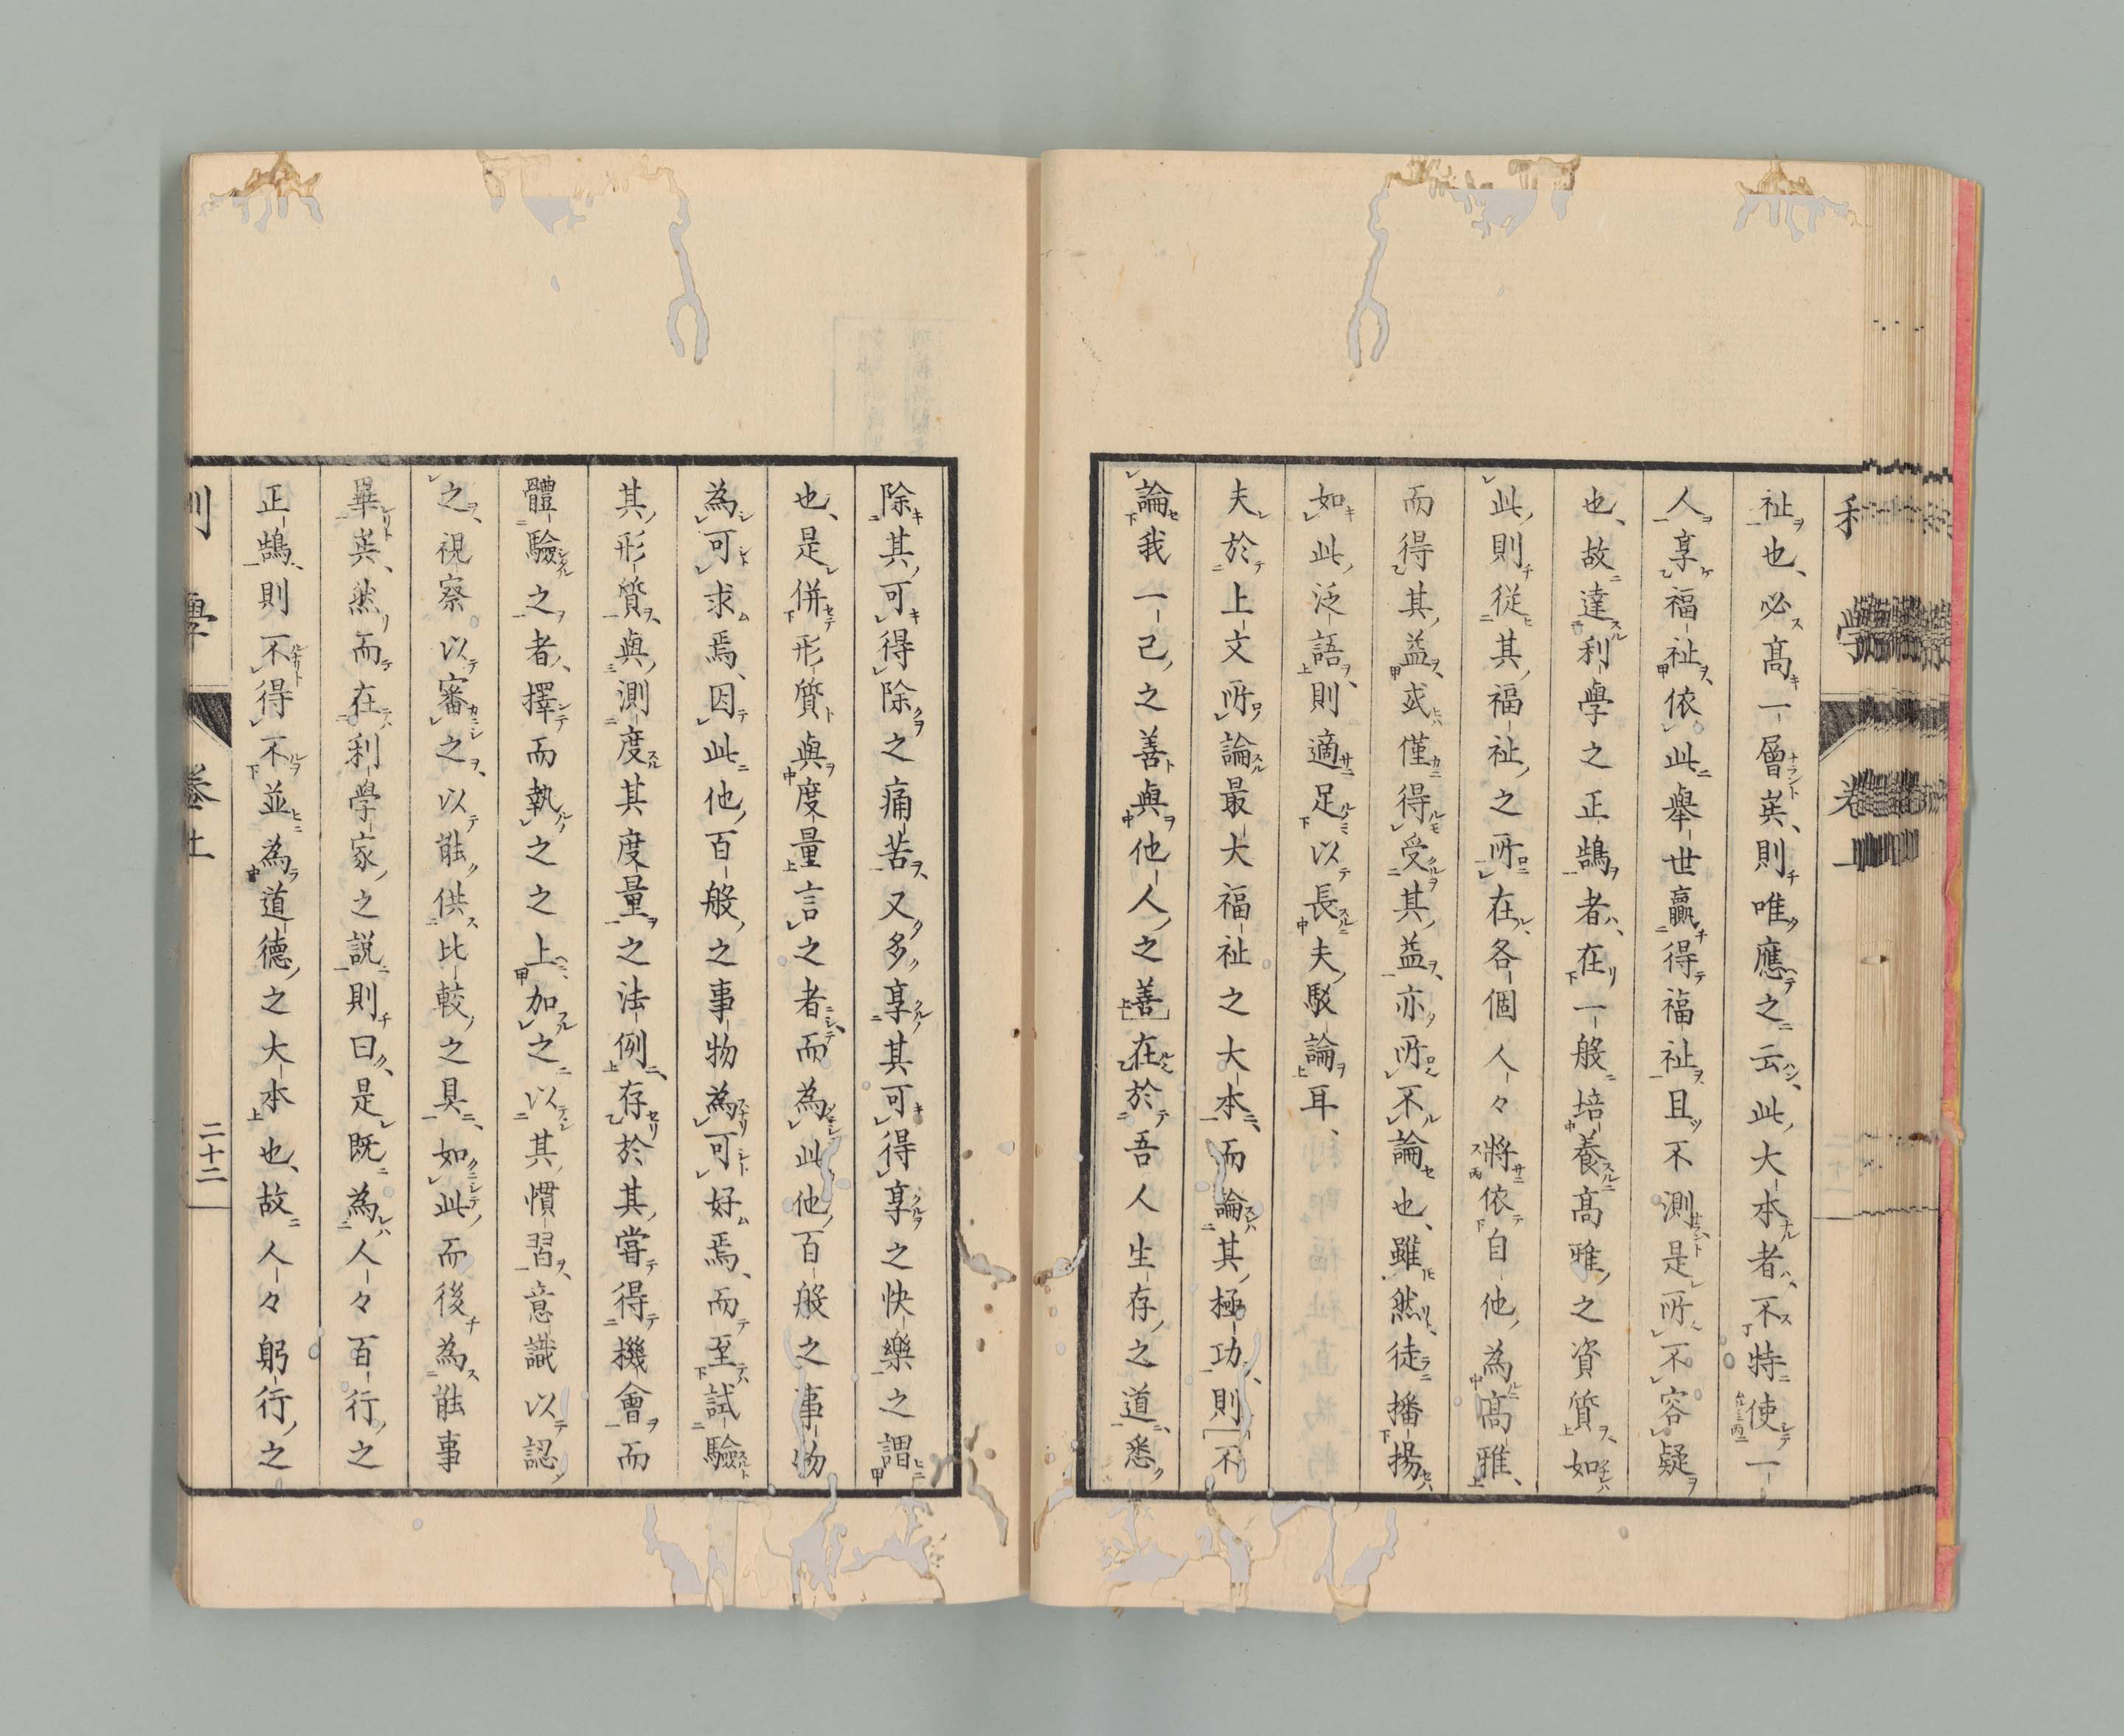 祉也、必高一層矣、則唯應之云、此大本者不特使一
人享福祉依此擧世贏得福祉且不測是所不容疑
也、故達利學之正鵠者在一般培養高雅之資質如
此則從其福祉之所在各個人々將依自他為高雅、
而得其益或僅得受其益亦所不論也、雖然徒播揚
如此泛語則適足以長夫駁論耳、
夫於上文所論最大福祉之大本而論其極功則不
論我一己之善與他人之善在於吾人生存之道悉
除其可得除之痛苦又多享其可得享之快樂之謂
也、是併形質與度量言之者而為此他百般之事物
為可求焉、因此他百般之事物為可好焉、而至試驗
其形質與測度其度量之法例存於其嘗得機會而
體驗之者、擇而執之之上加之以其慣習意識以認
之、視察以審之、以能供比較之具如此而後為能事
畢矣、然而在利學家之説則曰是既為人々百行之
正鵠、則不得不並為道德之大本也、故人々躬行之
利學 卷上 二十二